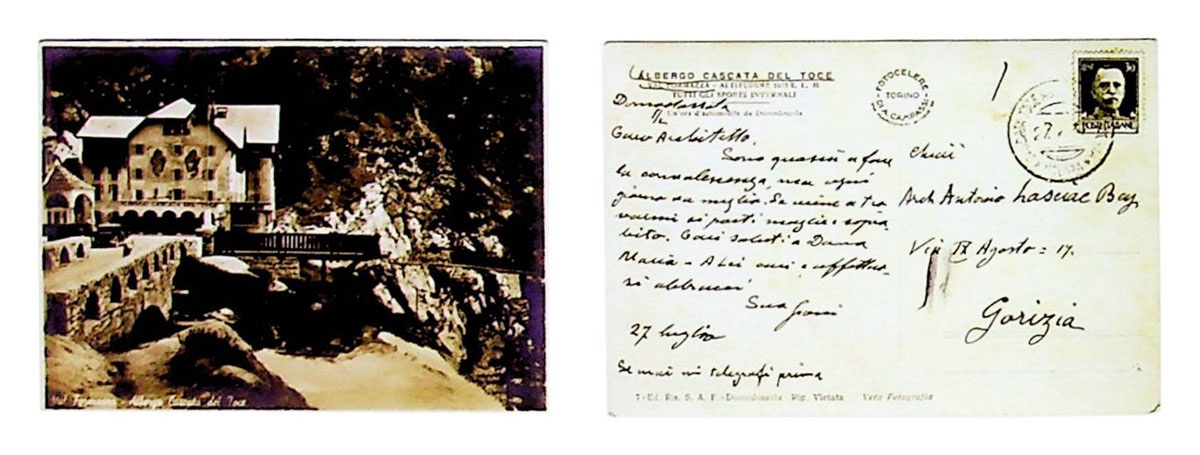 Val Formazza - Albergo Cascata del Toce
ALBERGO CASCATA DEL TOCE
VAL FORMAZZA - ALTITUDINE 1675 S. L. M.
TUTTI GLI SPORTS INVERNALI
Un'ora d'automobile da Domodossola
FOTOCELERE
TORINO
DI A. CAMPASSI
Domodossola
Caro Architetto,
Sono quassù a fare
la convalescenza, ma ogni
giorno va meglio. Se viene a tro
varmi si parti maglie e sopra
bito. Cari saluti a Donna
Maria - A Lei cari e affettuo
si abbracci
Suo
27 luglio
Se mai mi telegrafi prima
Arch Antonio Lasciac Bey
Via IX Agosto = 17.
Gorizia
27
POSTE ITALIANE
7 - Ed. Ris. S. A. F. - Domodossola Rip. Vietata Vera Fotografia